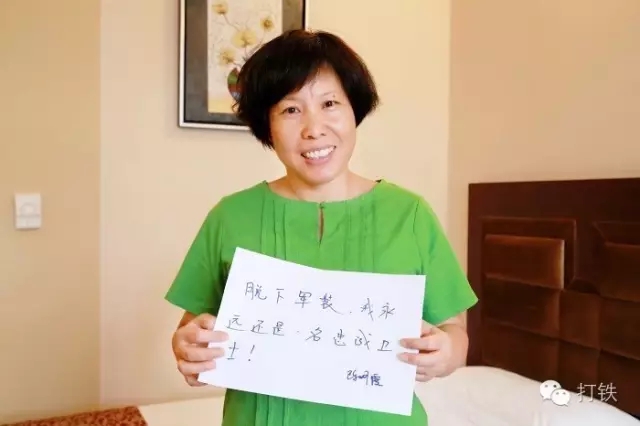 脱下军装,我永
远还是一名 卫
士!
打铁